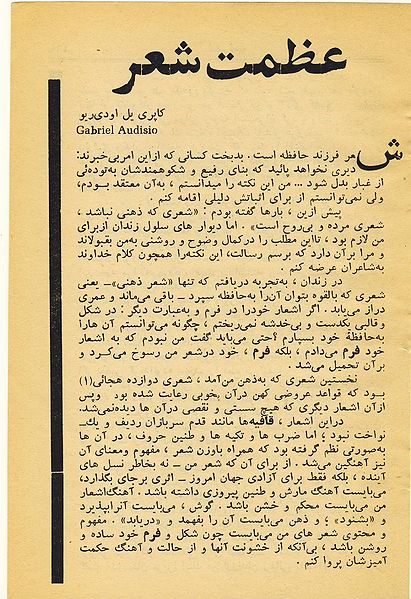 عظمت شعر
کاپری یل اودی‌ریو
Gabriel Audisio
شعر فرزند حافظه است . بدبخت کسانی که ازاین امربی‌خبرند:
دیری نخواهد پائید که بنای رفیع و شکوهمندشان به‌توده‌ئی
از غبار بدل شود ... من این نکته را میدانستم ، به‌آن معتقد بـودم،
ولی نمی‌توانستم از برای اثباتش دلیلی اقامه کنم .
پیش ازین ، بارها گفته بودم : «شعری که ذهنی نباشد ،
شعری مرده و بی‌روح است» . اما دیوار های سلول زندان ازبرای
من لازم بود ، تااین مطلب را درکمال وضوح و روشنی به‌من بقبولاند
و مرا برآن دارد که برسم رسالت، این نکته‌را همچون کلام خداوند
به‌شاعران عرضه کنم .
در زندان ، به‌تجربه دریافتم که تنها «شعر ذهنی»ـ یعنی
شعری که بالقوه بتوان آن‌را به‌حافظه سپرد ـ باقی می‌ماند و عمری
دراز می‌یابد . اگر اشعار خودرا در فرم و به‌عبارت دیگر : در شکل
و قالبی یکدست و بی‌خدشه نمی‌ریختم ، چگونه می‌توانستم آن هارا
به‌حافظهٔ خود بسپارم ؟حتی می‌باید گفت من نبودم که به اشعار
خود فرم می‌دادم ، بلکه فرم ، خود درشعر من رسوخ می‌کـرد و
برآن تحمیل می‌شد .
نخستین شعری که به‌ذهن من‌آمد ، شعری دوازده هجائی(۱)
بـود که قواعد عروضی کهن درآن بخوبی رعایت شده بود وپس
ازآن اشعار دیگری که هیچ سستی و نقصی درآن ها دیده‌نمی‌شد.
دراین اشعار ، قافیه‌ها مانند قدم سربازان ردیف و یك‌ـ
نواخت نبود ، اما ضرب ها و تکیه ها و طنین حروف ، در آن ها
به‌صورتی نظم گرفته بود که همراه باوزن شعر ، مفهوم ومعنای آن
نیز آهنگین می‌شد . از برای آن که شعر من ـ نه بخاطر نسل های
آینده ، بلکه فقط برای آزادی جهان امروز ـ اثری برجای بگذارد،
می‌بایست آهنگ مارش و طنین پیروزی داشته باشد . آهنگ‌اشعار
من می‌بایست محکم و خشن باشد . گوش ، می‌بایست آنرابپذیرد
و «بشنود» ؛ و ذهن می‌بایست آن را بفهمد و «دریابد» . مفهوم و
محتوی شعر های من می‌بایست چون شکل و فرم خود ساده و
روشن باشد ، بی‌آنکه از خشونت آنها و از حالت و آهنگ حکمت
آمیزشان پروا کنم .